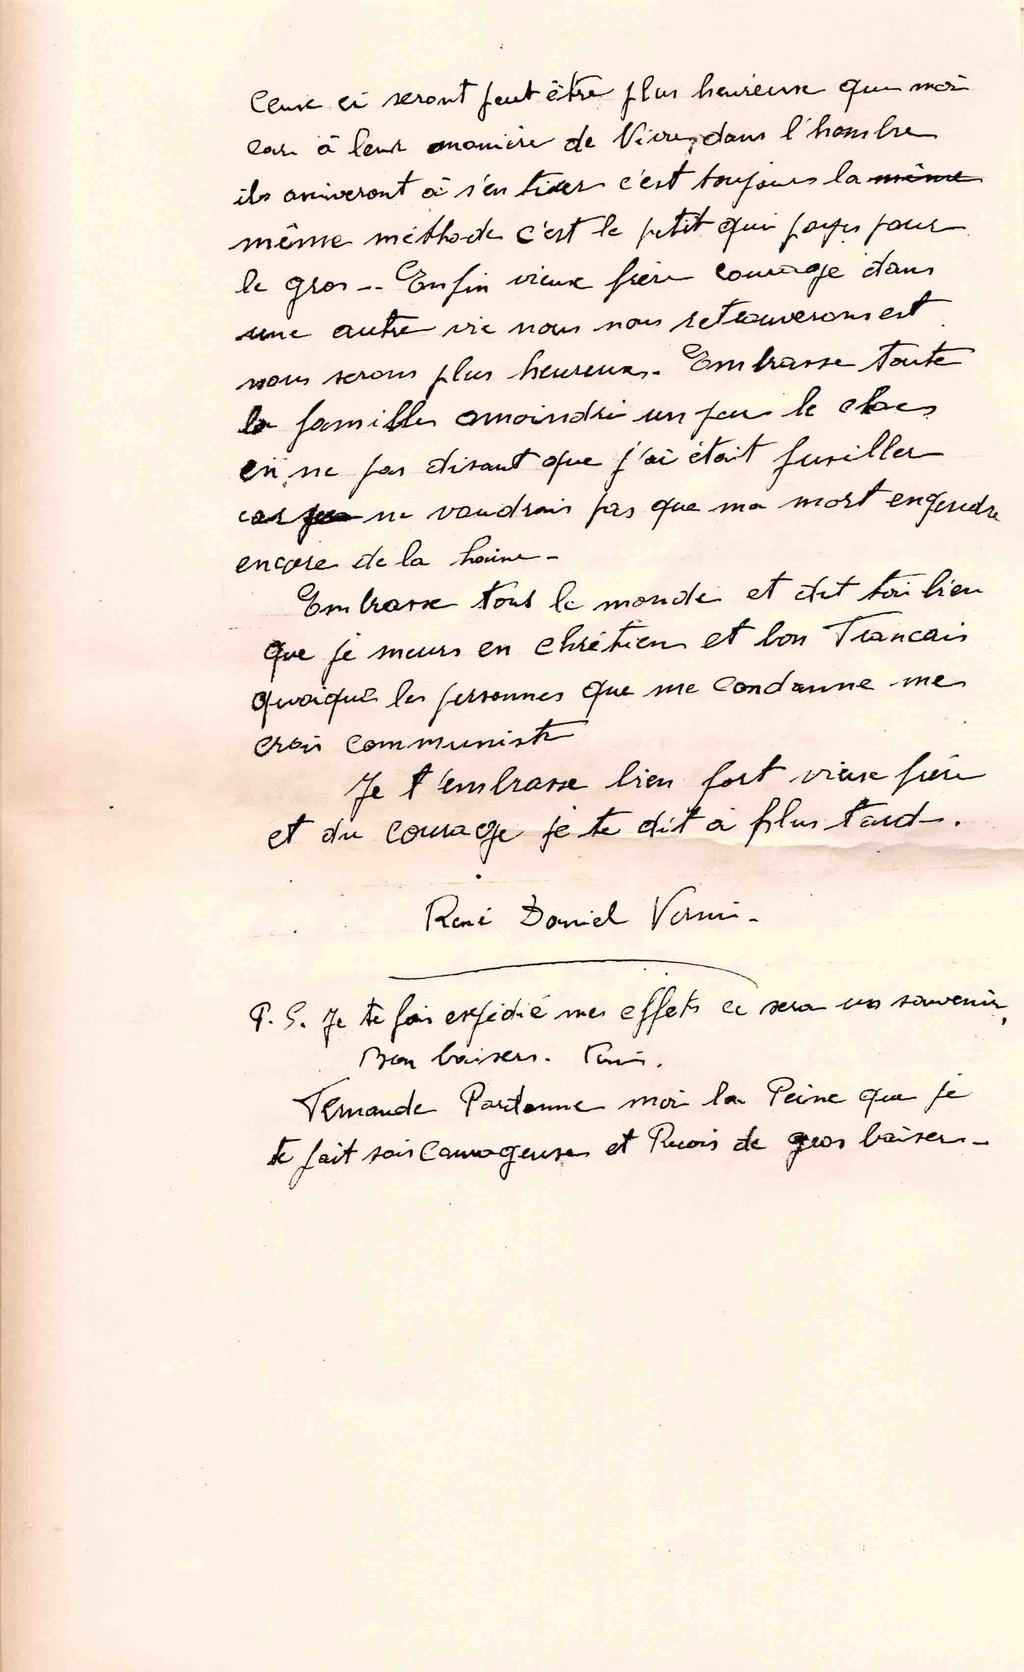 Ceux ci seront peut être plus heureuse que moi
car à leur manière de Vivre, dans l'hombre
ils ariveront à s'en tirer c'est toujours la même
même méthode c'est le petit qui payes pour
le gros -- Enfin vieux frère courage dans
une autre vie nous nous retrouverons est
nous serons plus heureux. Embrasse toute
la famille amoindri un peu le choc
en ne pas disant que j'ai était fusiller
car je ne voudrais pas que ma mort engendre
encore de la haine -
Embrasse tout le monde et dit toi bien
que je meurs en chrétien et bon Francais
quoique les personnes que me Condanne me
crois communiste
Je t'embrasse bien fort vieux frère
et du courage je te dit à plus tard.
René Daniel
P.S. Je te fais expédié mes effets ce sera un souvenir,
Bon baisers.
Fernande Pardonne moi la Peine que je
te fait sois Courageuse et Recois de gros baisers -